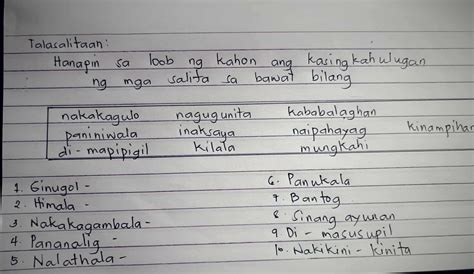 Talasalitaan:
Hanapin sa loob ng kahon ang kasingkahulugan
ng mga salita sa bawat bilang
nakakagulo nagugunita kababalaghan
paniniwala inaksaya naipahayag kinampihan
di-mapipigil kilala mungkahi
1. Ginugol -
2. Himala -
3. Nakakagambala -
4. Pananalig -
5. Nalathala -
6. Panukala
7. Bantog
8. Sinang ayunan
9. Di - masusupil
10. Nakikini - kinita